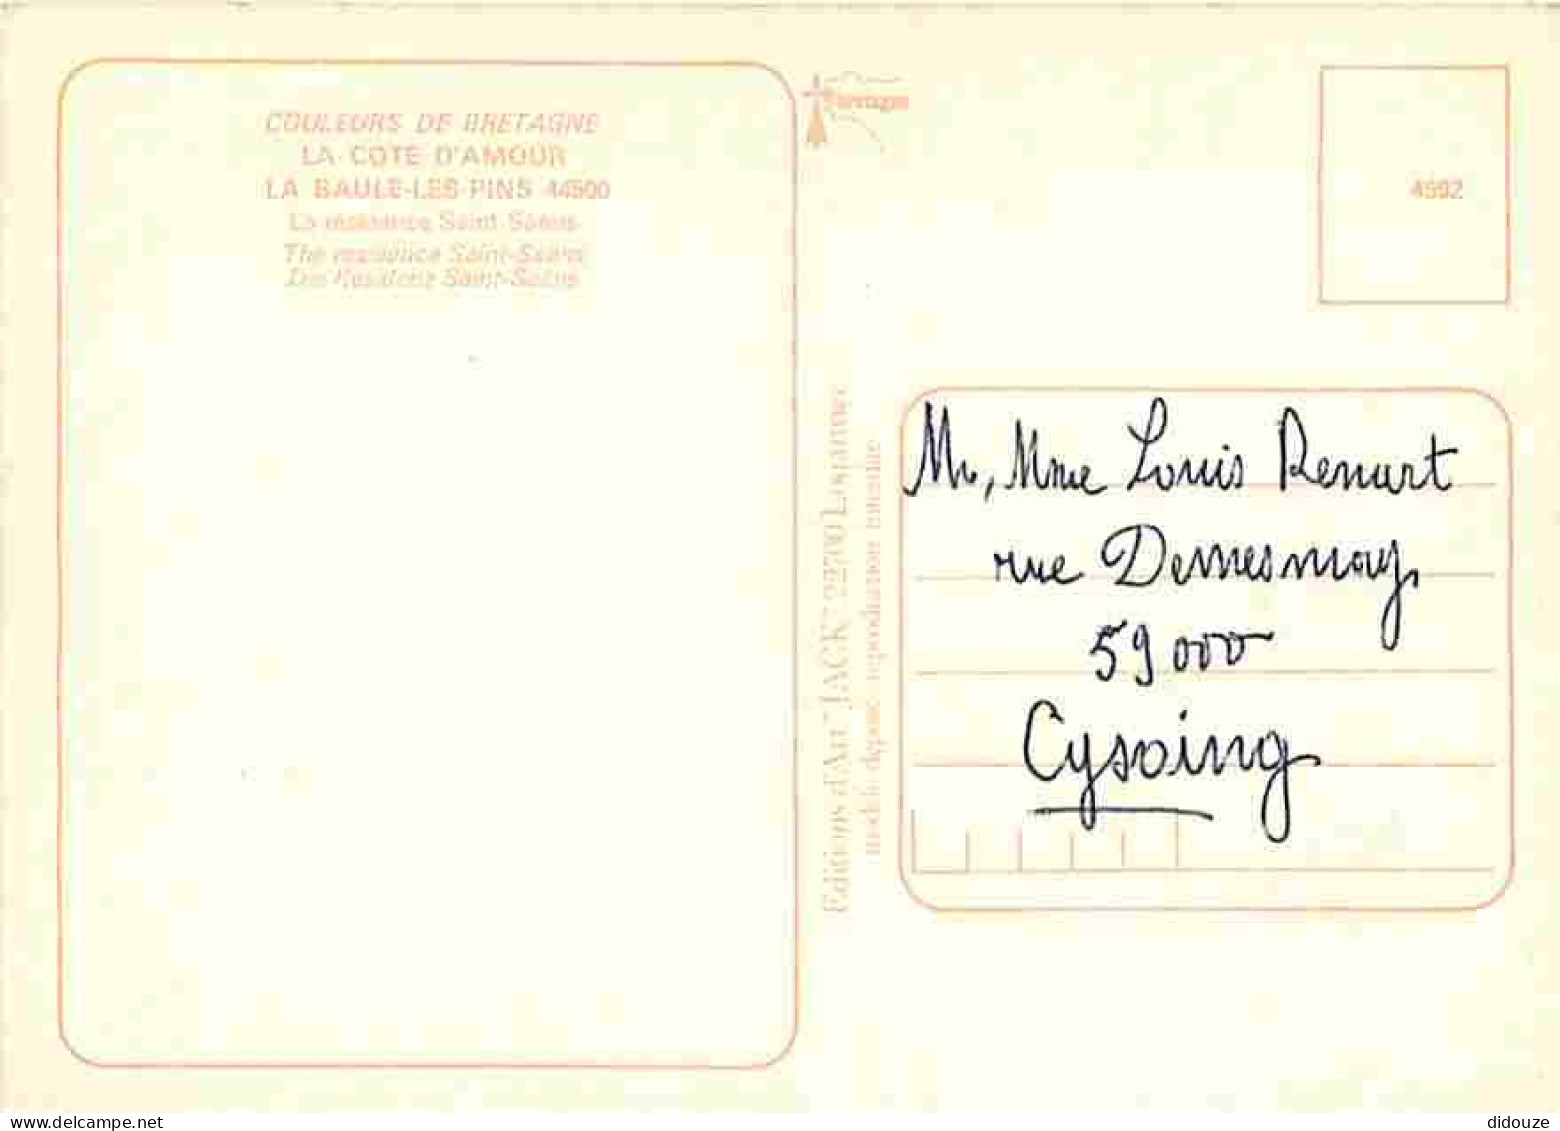 COULEURS DE BRETAGNE
LA COTE D'AMOUR
LA BAULE-LES-PINS 44500
La résidence Saint-Saëns
The residence Saint-Saëns
Die Residenz Saint-Saëns
Bretagne
4592
Editions d'Art JACK 22700 Louannec
modèle déposé reproduction interdite
Mr, Mme Louis Renart
rue Demesmay
59000
Cysoing
delcampe.net
didouze